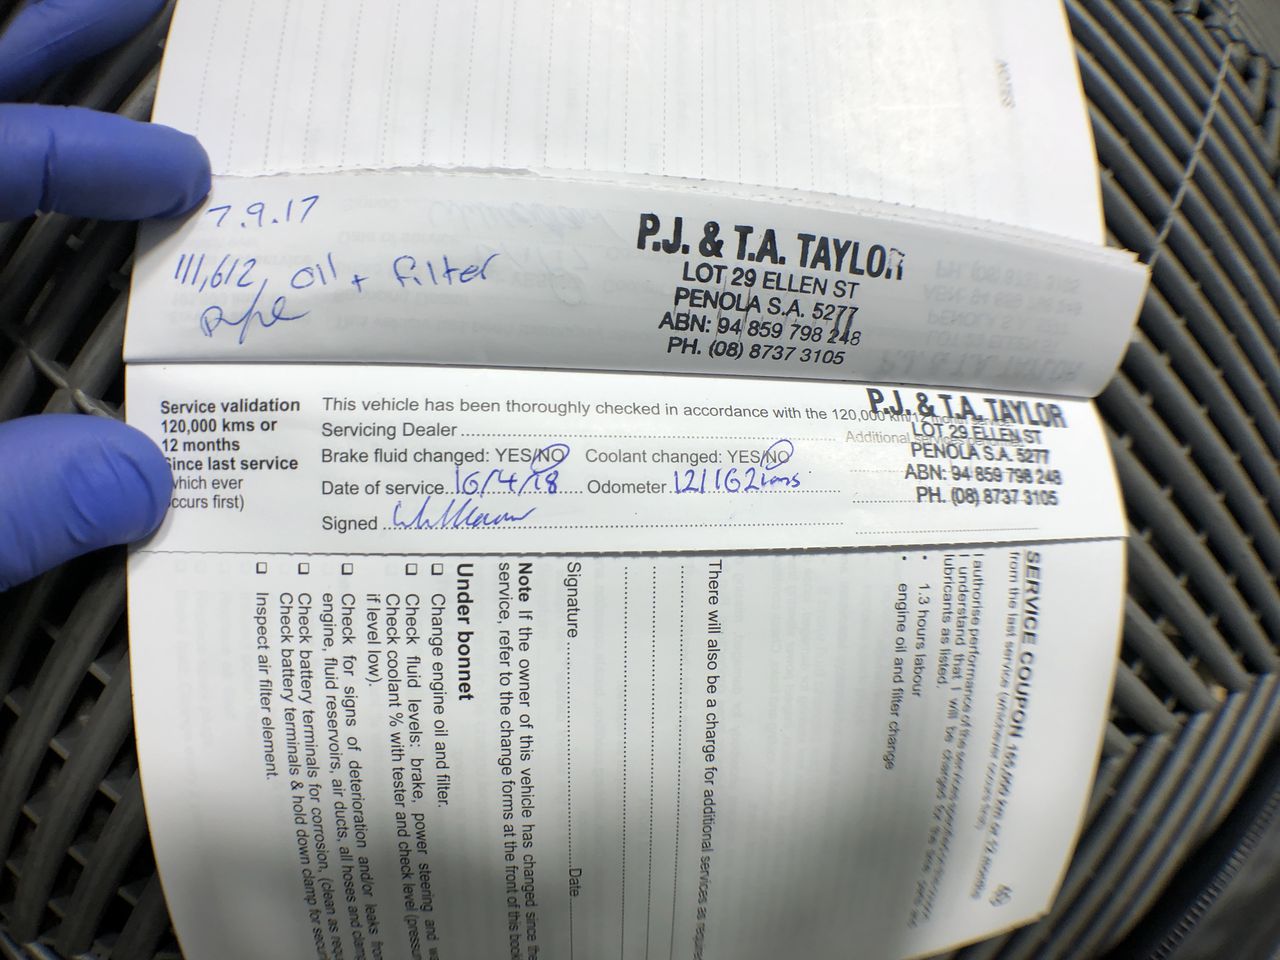 NOTES
7.9.17
111,612, oil + filter
P.J. & T.A. TAYLOR
LOT 29 ELLEN ST
PENOLA S.A. 5277
ABN: 94 859 798 248
PH. (08) 8737 3105
Service validation
120,000 kms or
12 months
Since last service
which ever
occurs first)
This vehicle has been thoroughly checked in accordance with the 120,000 km/12 month
Servicing Dealer
Additional
Brake fluid changed: YES/NO Coolant changed: YES/NO
Date of service 16/4/18 Odometer 121162kms
Signed
P.J. & T.A. TAYLOR
LOT 29 ELLEN ST
PENOLA S.A. 5277
ABN: 94 859 798 248
PH. (08) 8737 3105
SERVICE COUPON
from the last service (whichever occurs first)
I authorise performance of this service
I understand that I will be charged for the
lubricants as listed.
• 1.3 hours labour
• engine oil and filter change
There will also be a charge for additional services as
Signature Date
Note If the owner of this vehicle has changed since the
service, refer to the change forms at the front of this
Under bonnet
Change engine oil and filter.
Check fluid levels: brake, power steering and
Check coolant % with tester and check level
if level low).
Check for signs of deterioration and/or leaks
engine, fluid reservoirs, air ducts, all hoses and
Check battery terminals for corrosion, (clean as
Check battery terminals & hold down clamp for
Inspect air filter element.